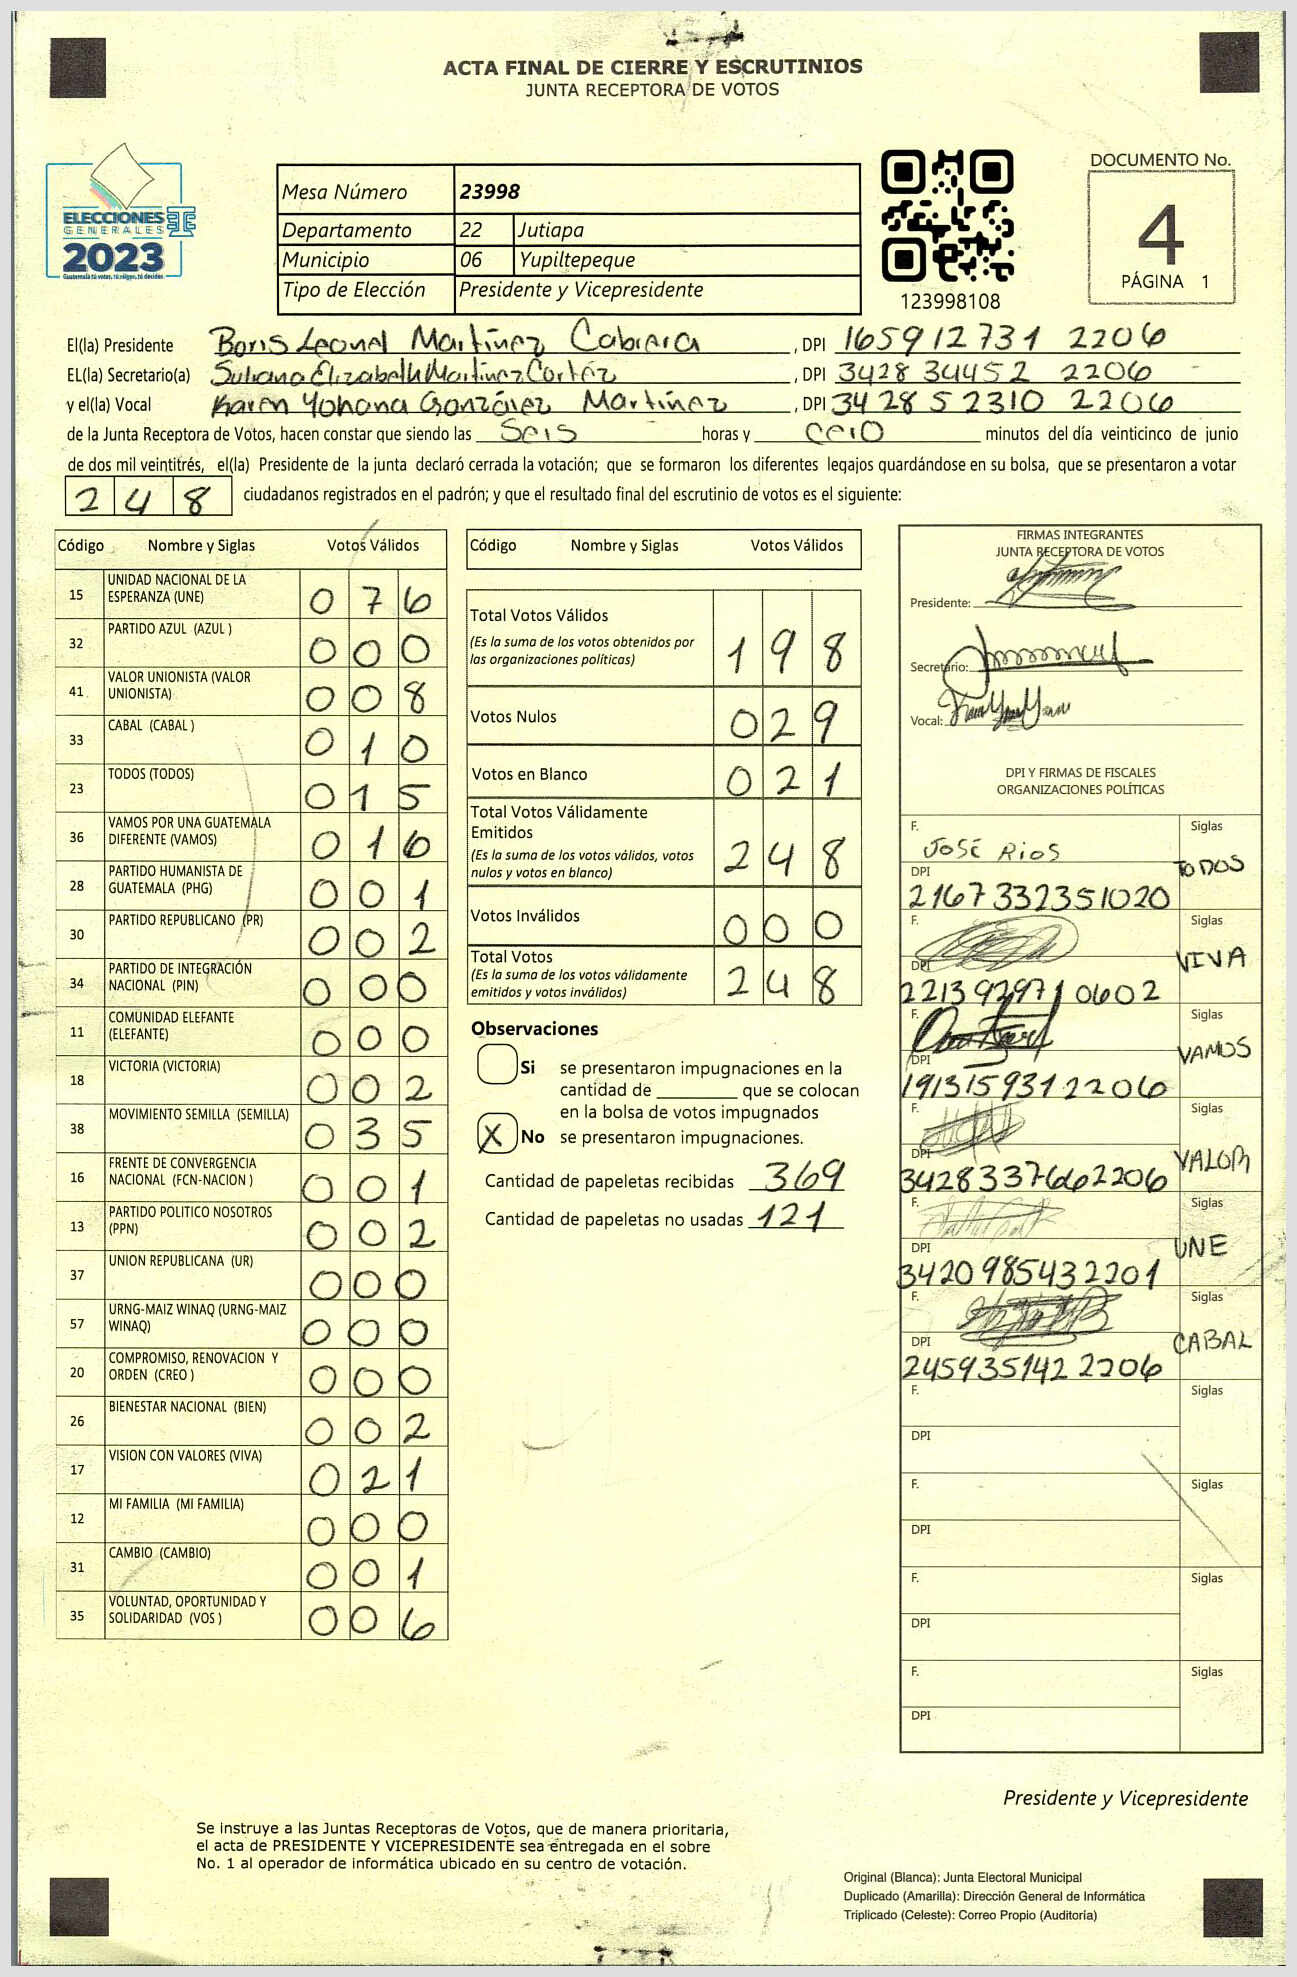 ACTA FINAL DE CIERRE Y ESCRUTINIOS
JUNTA RECEPTORA DE VOTOS
ELECCIONES
GENERALES
2023
Guatemala tú votas, tú eliges, tú decides
Mesa Número 23998
Departamento 22 Jutiapa
Municipio 06 Yupiltepeque
Tipo de Elección Presidente y Vicepresidente
123998108
DOCUMENTO No.
4
PÁGINA 1
El(la) Presidente Boris Leonel Martínez Cabrera, DPI 165912731 2206
EL(la) Secretario(a) Suliana Elizabeth Martínez Cortéz, DPI 3428 34452 2206
y el(la) Vocal Karen Yohana González Martínez, DPI 3428 52310 2206
de la Junta Receptora de Votos, hacen constar que siendo las Seis horas y cero minutos del día veinticinco de junio
de dos mil veintitrés, el(la) Presidente de la junta declaró cerrada la votación; que se formaron los diferentes legajos guardándose en su bolsa, que se presentaron a votar
248 ciudadanos registrados en el padrón; y que el resultado final del escrutinio de votos es el siguiente:
Código Nombre y Siglas Votos Válidos
15 UNIDAD NACIONAL DE LA ESPERANZA (UNE) 076
32 PARTIDO AZUL (AZUL ) 000
41 VALOR UNIONISTA (VALOR UNIONISTA) 008
33 CABAL (CABAL ) 010
23 TODOS (TODOS) 015
36 VAMOS POR UNA GUATEMALA DIFERENTE (VAMOS) 016
28 PARTIDO HUMANISTA DE GUATEMALA (PHG) 001
30 PARTIDO REPUBLICANO (PR) 002
34 PARTIDO DE INTEGRACIÓN NACIONAL (PIN) 000
11 COMUNIDAD ELEFANTE (ELEFANTE) 000
18 VICTORIA (VICTORIA) 002
38 MOVIMIENTO SEMILLA (SEMILLA) 035
16 FRENTE DE CONVERGENCIA NACIONAL (FCN-NACION ) 001
13 PARTIDO POLITICO NOSOTROS (PPN) 002
37 UNION REPUBLICANA (UR) 000
57 URNG-MAIZ WINAQ (URNG-MAIZ WINAQ) 000
20 COMPROMISO, RENOVACION Y ORDEN (CREO ) 000
26 BIENESTAR NACIONAL (BIEN) 002
17 VISION CON VALORES (VIVA) 021
12 MI FAMILIA (MI FAMILIA) 000
31 CAMBIO (CAMBIO) 001
35 VOLUNTAD, OPORTUNIDAD Y SOLIDARIDAD (VOS ) 006
Código Nombre y Siglas Votos Válidos
Total Votos Válidos 198
(Es la suma de los votos obtenidos por
las organizaciones políticas)
Votos Nulos 029
Votos en Blanco 021
Total Votos Válidamente
Emitidos 248
(Es la suma de los votos válidos, votos
nulos y votos en blanco)
Votos Inválidos 000
Total Votos 248
(Es la suma de los votos válidamente
emitidos y votos inválidos)
Observaciones
Si se presentaron impugnaciones en la
cantidad de ________ que se colocan
en la bolsa de votos impugnados
X No se presentaron impugnaciones.
Cantidad de papeletas recibidas 369
Cantidad de papeletas no usadas 121
FIRMAS INTEGRANTES
JUNTA RECEPTORA DE VOTOS
Presidente:
Secretario:
Vocal:
DPI Y FIRMAS DE FISCALES
ORGANIZACIONES POLÍTICAS
F. JOSÉ RIOS Siglas TODOS
DPI 2167332351020
F. Siglas VIVA
DPI 2213929710602
F. Siglas VAMOS
DPI 1913159312206
F. Siglas VALOR
DPI 3428337662206
F. Siglas UNE
DPI 3420985432201
F. Siglas CABAL
DPI 2459351422206
F. Siglas
DPI
F. Siglas
DPI
F. Siglas
DPI
F. Siglas
DPI
Presidente y Vicepresidente
Se instruye a las Juntas Receptoras de Votos, que de manera prioritaria,
el acta de PRESIDENTE Y VICEPRESIDENTE sea entregada en el sobre
No. 1 al operador de informática ubicado en su centro de votación.
Original (Blanca): Junta Electoral Municipal
Duplicado (Amarilla): Dirección General de Informática
Triplicado (Celeste): Correo Propio (Auditoría)